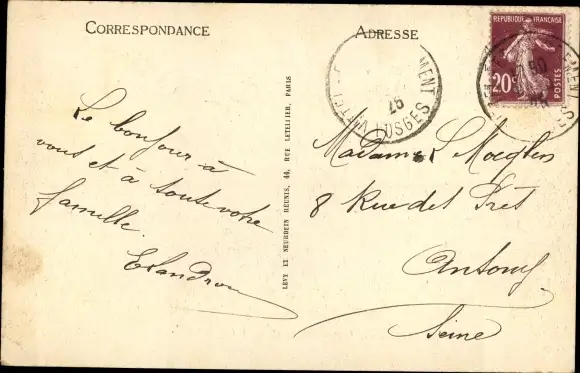 CORRESPONDANCE
Le bonjour à
vous et à toute votre
famille.
LEVY ET NEURDEIN RÉUNIS, 44, RUE LETELLIER, PARIS
ADRESSE
VITTEL
VOSGES
26
REPUBLIQUE FRANÇAISE
20c
POSTES
Madame
8 Rue des Prés
Antony
Seine